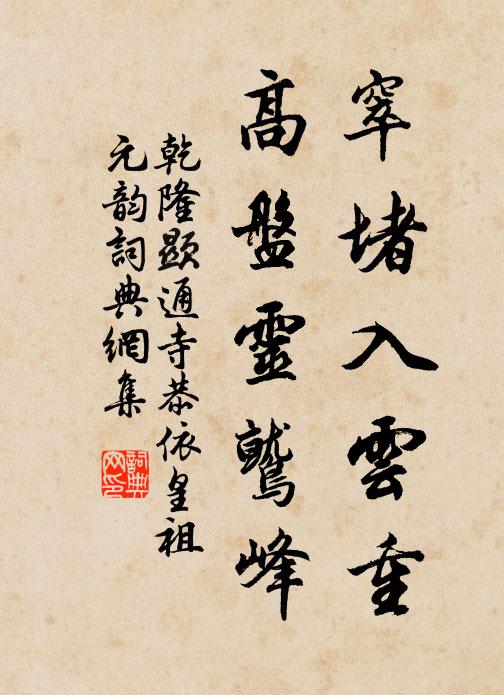 窣堵入雲重
高盤靈鷲峰
乾隆顯通寺恭依皇祖
元韵詞典網集
詞典网印